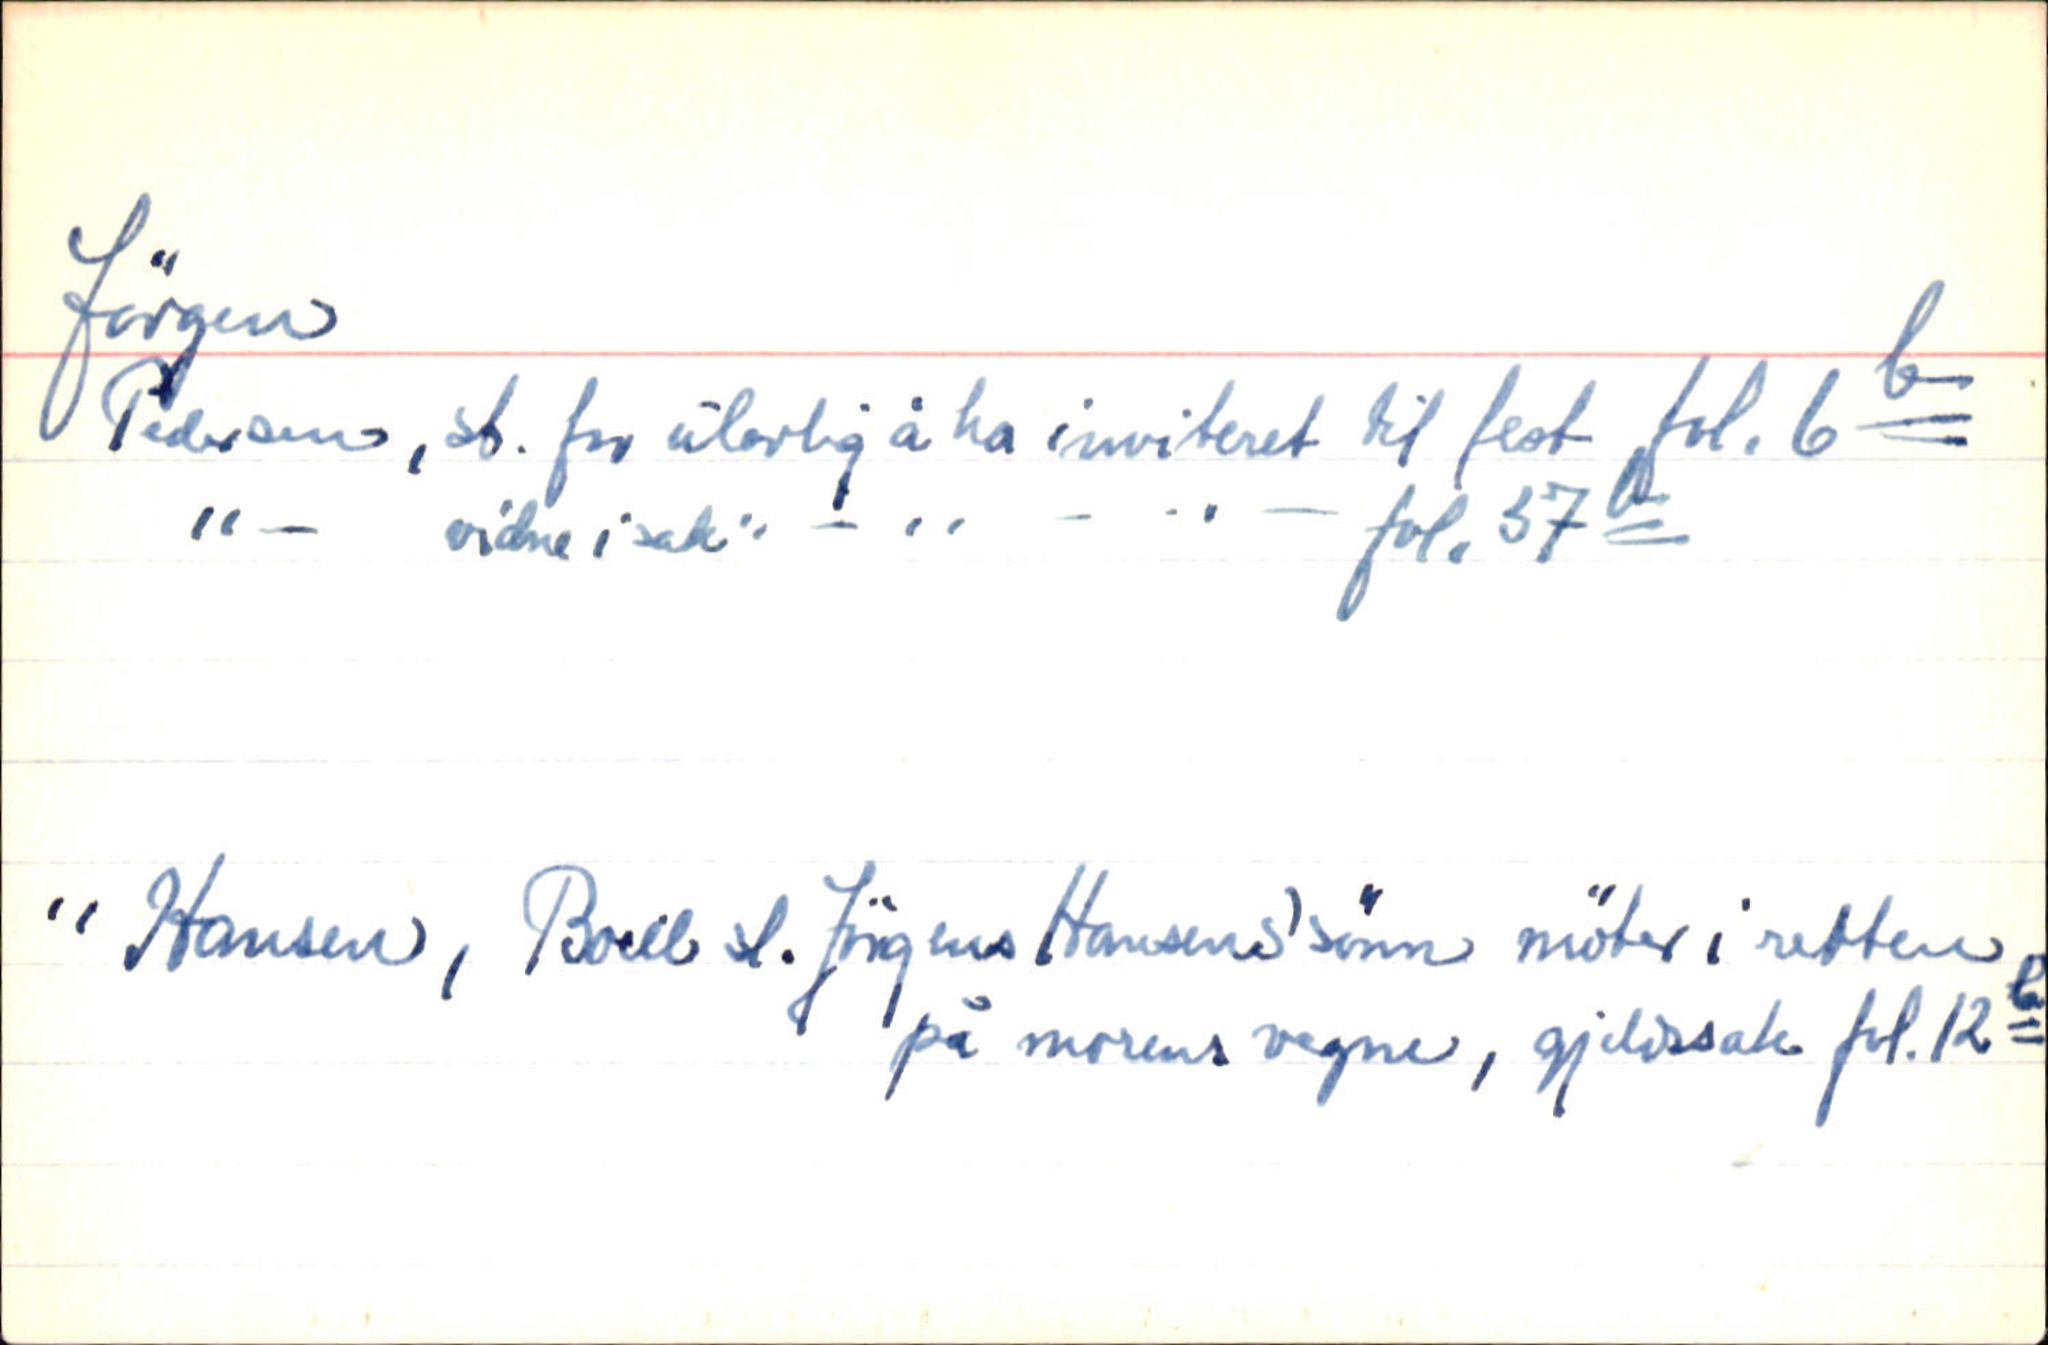 Jörgen
Pedersen, st. for ulovlig å ha inviteret til fest fol. 6 b
" — vidne i sak " — " — " — fol. 37 b
" Hansen, Boell sl. Jörgens Hansens sönn möter i retten
på morens vegne, gjeldssak fol. 12 b